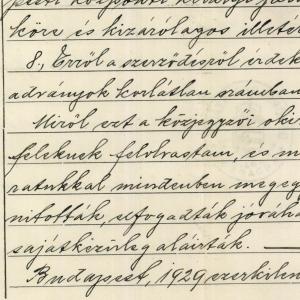 pesti központi királyi já
köre és kizárólagos illeté
8., Erről a szerződésről érdek
adványok korlátlan számban
Miről ezt a közjegyzői oki
feleknek felolvastam, és m
ratukkal mindenben megeg
nitották, elfogadták, jóváh
sajátkezüleg aláirták.
Budapest, 1929 ezerkilen